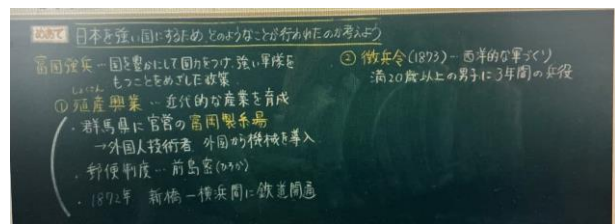 めあて 日本を強い国にするため、どのようなことが行われたのか考えよう
富国強兵…国を豊かにして国力をつけ、強い軍隊を
もつことをめざした政策
しょくさん
① 殖産興業…近代的な産業を育成
・群馬県に官営の富岡製糸場
→外国人技術者 外国から機械を導入
・郵便制度…前島密(ひそか)
・1872年 新橋ー横浜間に鉄道開通
② 徴兵令(1873)…西洋的な軍づくり
満20歳以上の男子に3年間の兵役